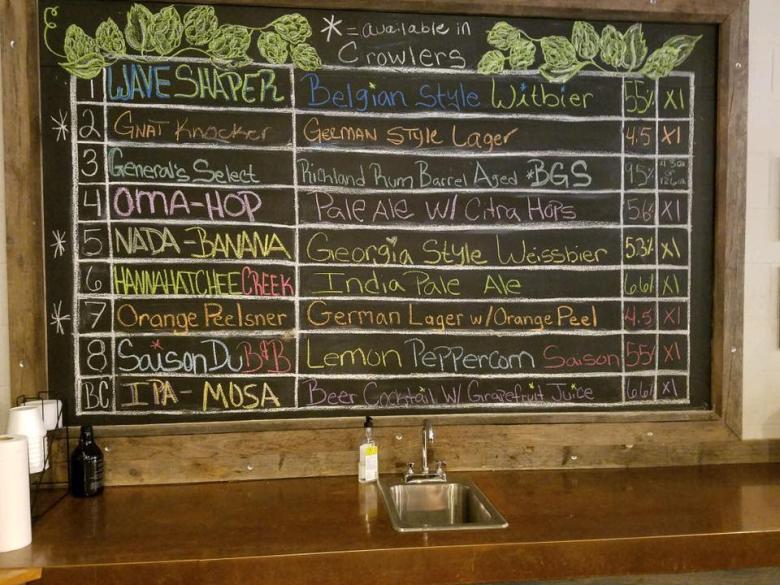 * = available in
Crowlers
1 WAVE SHAPER Belgian Style Witbier 5.5% X1
* 2 GNAT Knocker GERMAN STYLE Lager 4.5 X1
3 General's Select Richland Rum Barrel Aged *BGS 9.5%
4 OMA-HOP PALE ALE W/ Citra Hops 5.6% X1
* 5 NADA-BANANA Georgia Style Weissbier 5.3% X1
6 HANNAHATCHEE CREEK India Pale Ale 6.6% X1
* 7 Orange Peelsner German Lager w/Orange Peel 4.5 X1
8 Saison Du B&B Lemon Peppercorn Saison 5.5% X1
BC IPA-MOSA Beer Cocktail W/ Grapefruit Juice 6.6% X1